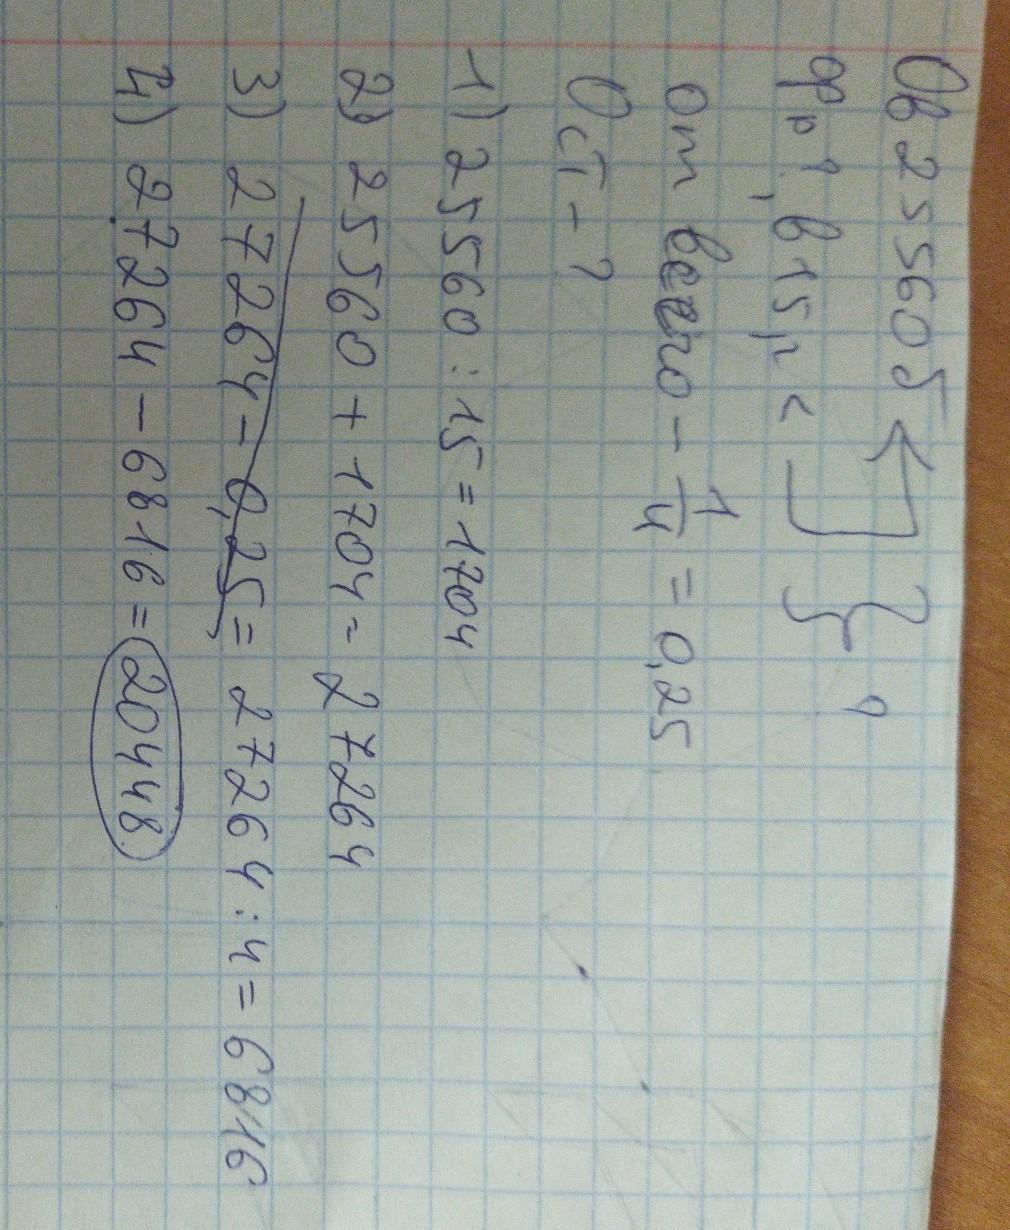 Ов 25560б ?
фр ?, в 15 р <
от всего - 1/4 = 0,25
Ост - ?
1) 25560 : 15 = 1704
2) 25560 + 1704 = 27264
3) 27264 - 0,25 = 27264 : 4 = 6816
4) 27264 - 6816 = 20448